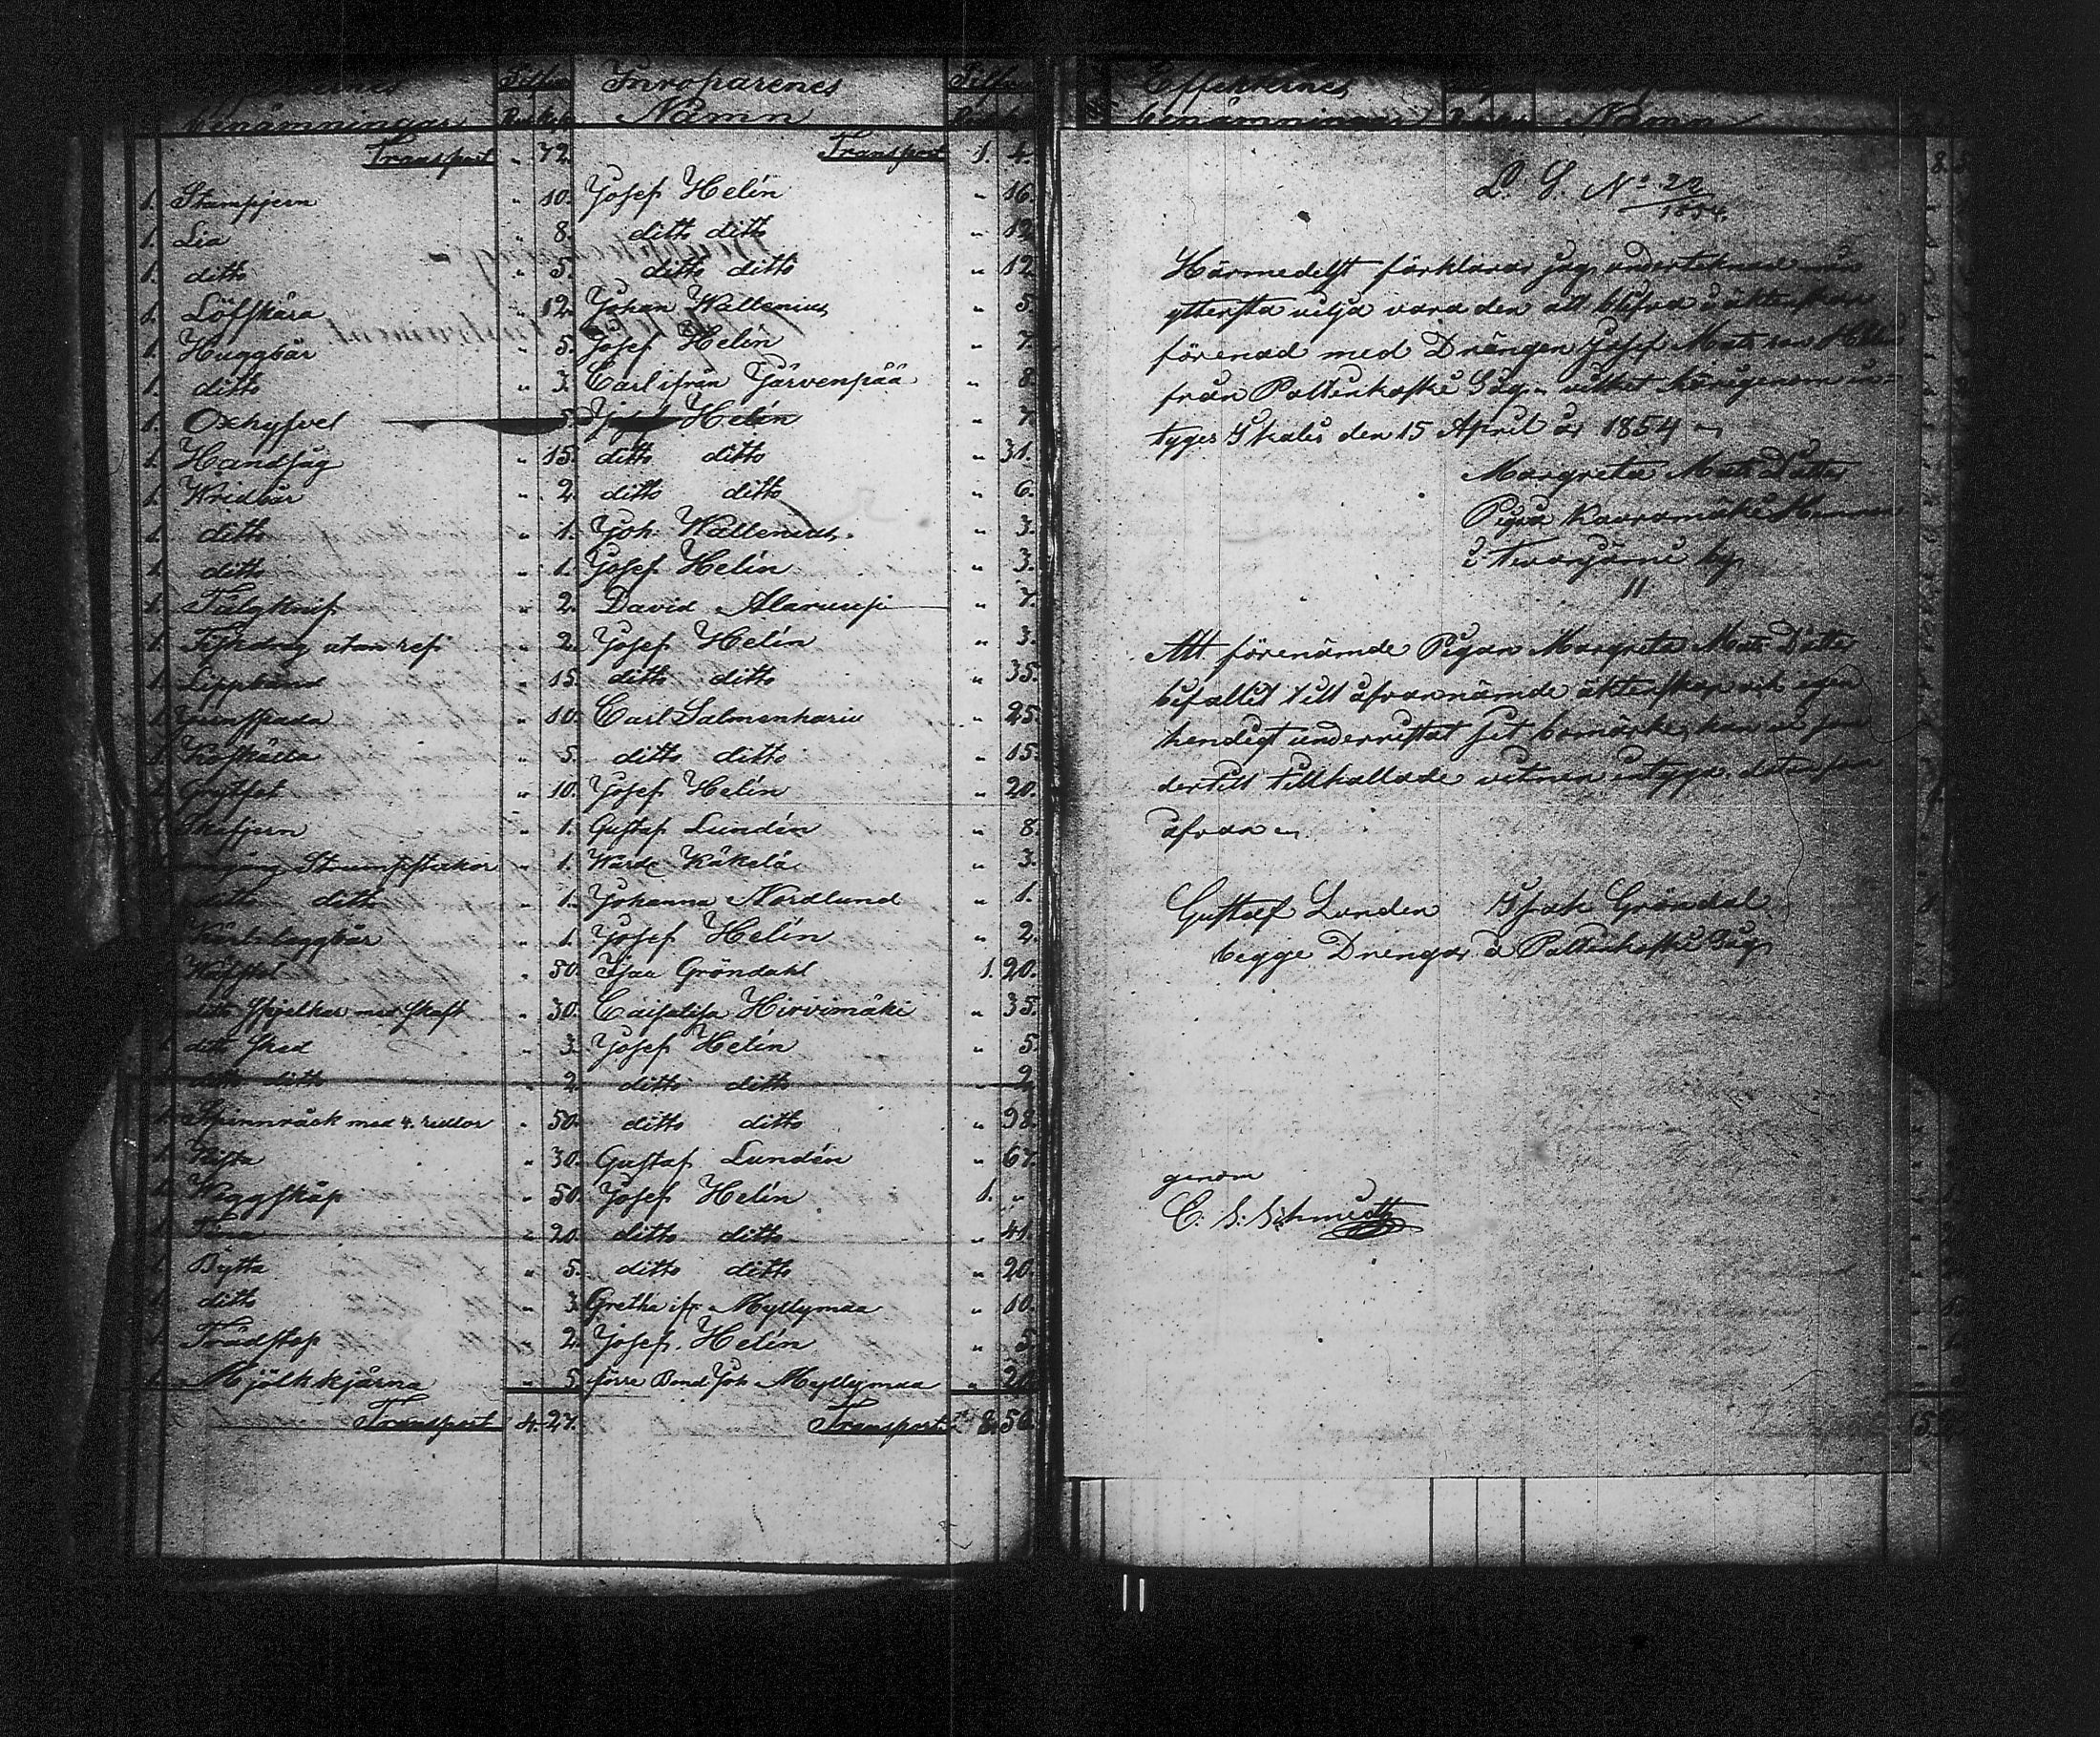 benämningar Rub. Kop. Inroparenes Namn Silfver
Transport " 72. Transport 1. 4.
1. Stampjern " 10. Josef Helín " 16.
1. Lia " 8. ditto ditto " 12
1. ditto " 5. ditto ditto " 12
1. Löfskära " 12. Johan Wallenius " 5.
1. Huggbär " 5. Josef Helín " 7.
1. ditto " 3. Carl ifrån Järvenpää " 8.
1. Oxhyfvel 5. Josef Helín " 7.
1. Handsåg " 15. ditto ditto " 31.
1. Wridbär " 2. ditto ditto " 6.
1. ditto " 1. Joh. Wallenius. " 3.
1. ditto " 1. Josef Helín " 3.
1. Tälgknif " 2. David Alaruusi " 7.
1. Fiskdrag utan ref " 2. Josef Helín " 3.
1. Lippband " 15. ditto ditto " 35.
1. Jernspada " 10. Carl Salmenharju " 25.
1. Koskälla " 5. ditto ditto " 15.
1. Grytfot " 10. Josef Helín " 20.
Skafjern " 1. Gustaf Lundén " 8.
Strumpstickor " 1. Wärde Käkelä " 3.
ditto ditto " 1. Johanna Nordlund " 1.
Kärl-laggbär " 1. Josef Helín " 2.
Wäfstol " 50. Isaa Gröndahl 1. 20.
ditto Spjelkar med skaft " 30. Caisalisa Hirvimäki " 35.
1. ditto sked " 3. Josef Helín " 5.
ditto ditto " 2. ditto ditto " 2.
1. Spinnråck med 4. rullor " 50. ditto ditto " 98.
1. Kista " 30. Gustaf Lundén " 67.
1. Wäggskåp " 50. Josef Helín 1. "
1. Tina " 20. ditto ditto " 41.
1. Bytta " 5. ditto ditto " 20.
1. ditto " 3. Gretha ifr. Myllymaa " 10.
1. Trädstop " 2. Josef Helín " 5.
1. Mjölkkjärna " 5. förre Bond Joh Myllymaa " 20.
Transport 4. 27. Transport 8. 56.
Effekternes
benämningar Namn
L. G. No 22/1854.
Härmedelst förklarar jag underteknad min
yttersta vilja vara den att blifva i äktenskap
förenad med Drängen Josef Mats son Helin
från Pattinkoski Såg, vilket härigenom in-
tyges Ikalis den 15 April år 1854
Margreta Mats Dotter
Pigan
by
11
Att förenämde Pigan Margreta Mats Dotter
befallit till åfvannämde äktenskap och egen
hendigt underristat sit bomärke, kan vi som
dertill tillkallade vitnen intyga. datum som
åfvan
Gustaf Lunden Isak Gröndal
begge Drengar å Pattinkoski Såg
genom
C. S. Schmidt
11